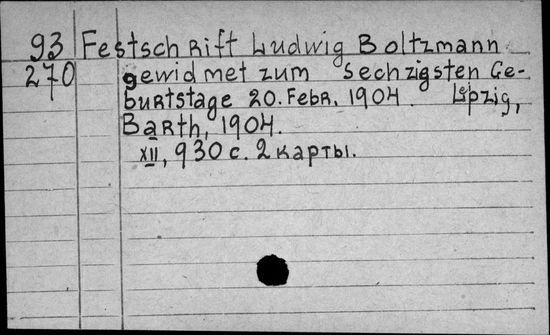 93 Festschrift Ludwig Boltzmann
270 gewidmet zum Sechzigsten Ge-
burtstage 20. Febr. 1904. Lpzig,
Barth, 1904.
XII, 930 с. 2 карты.